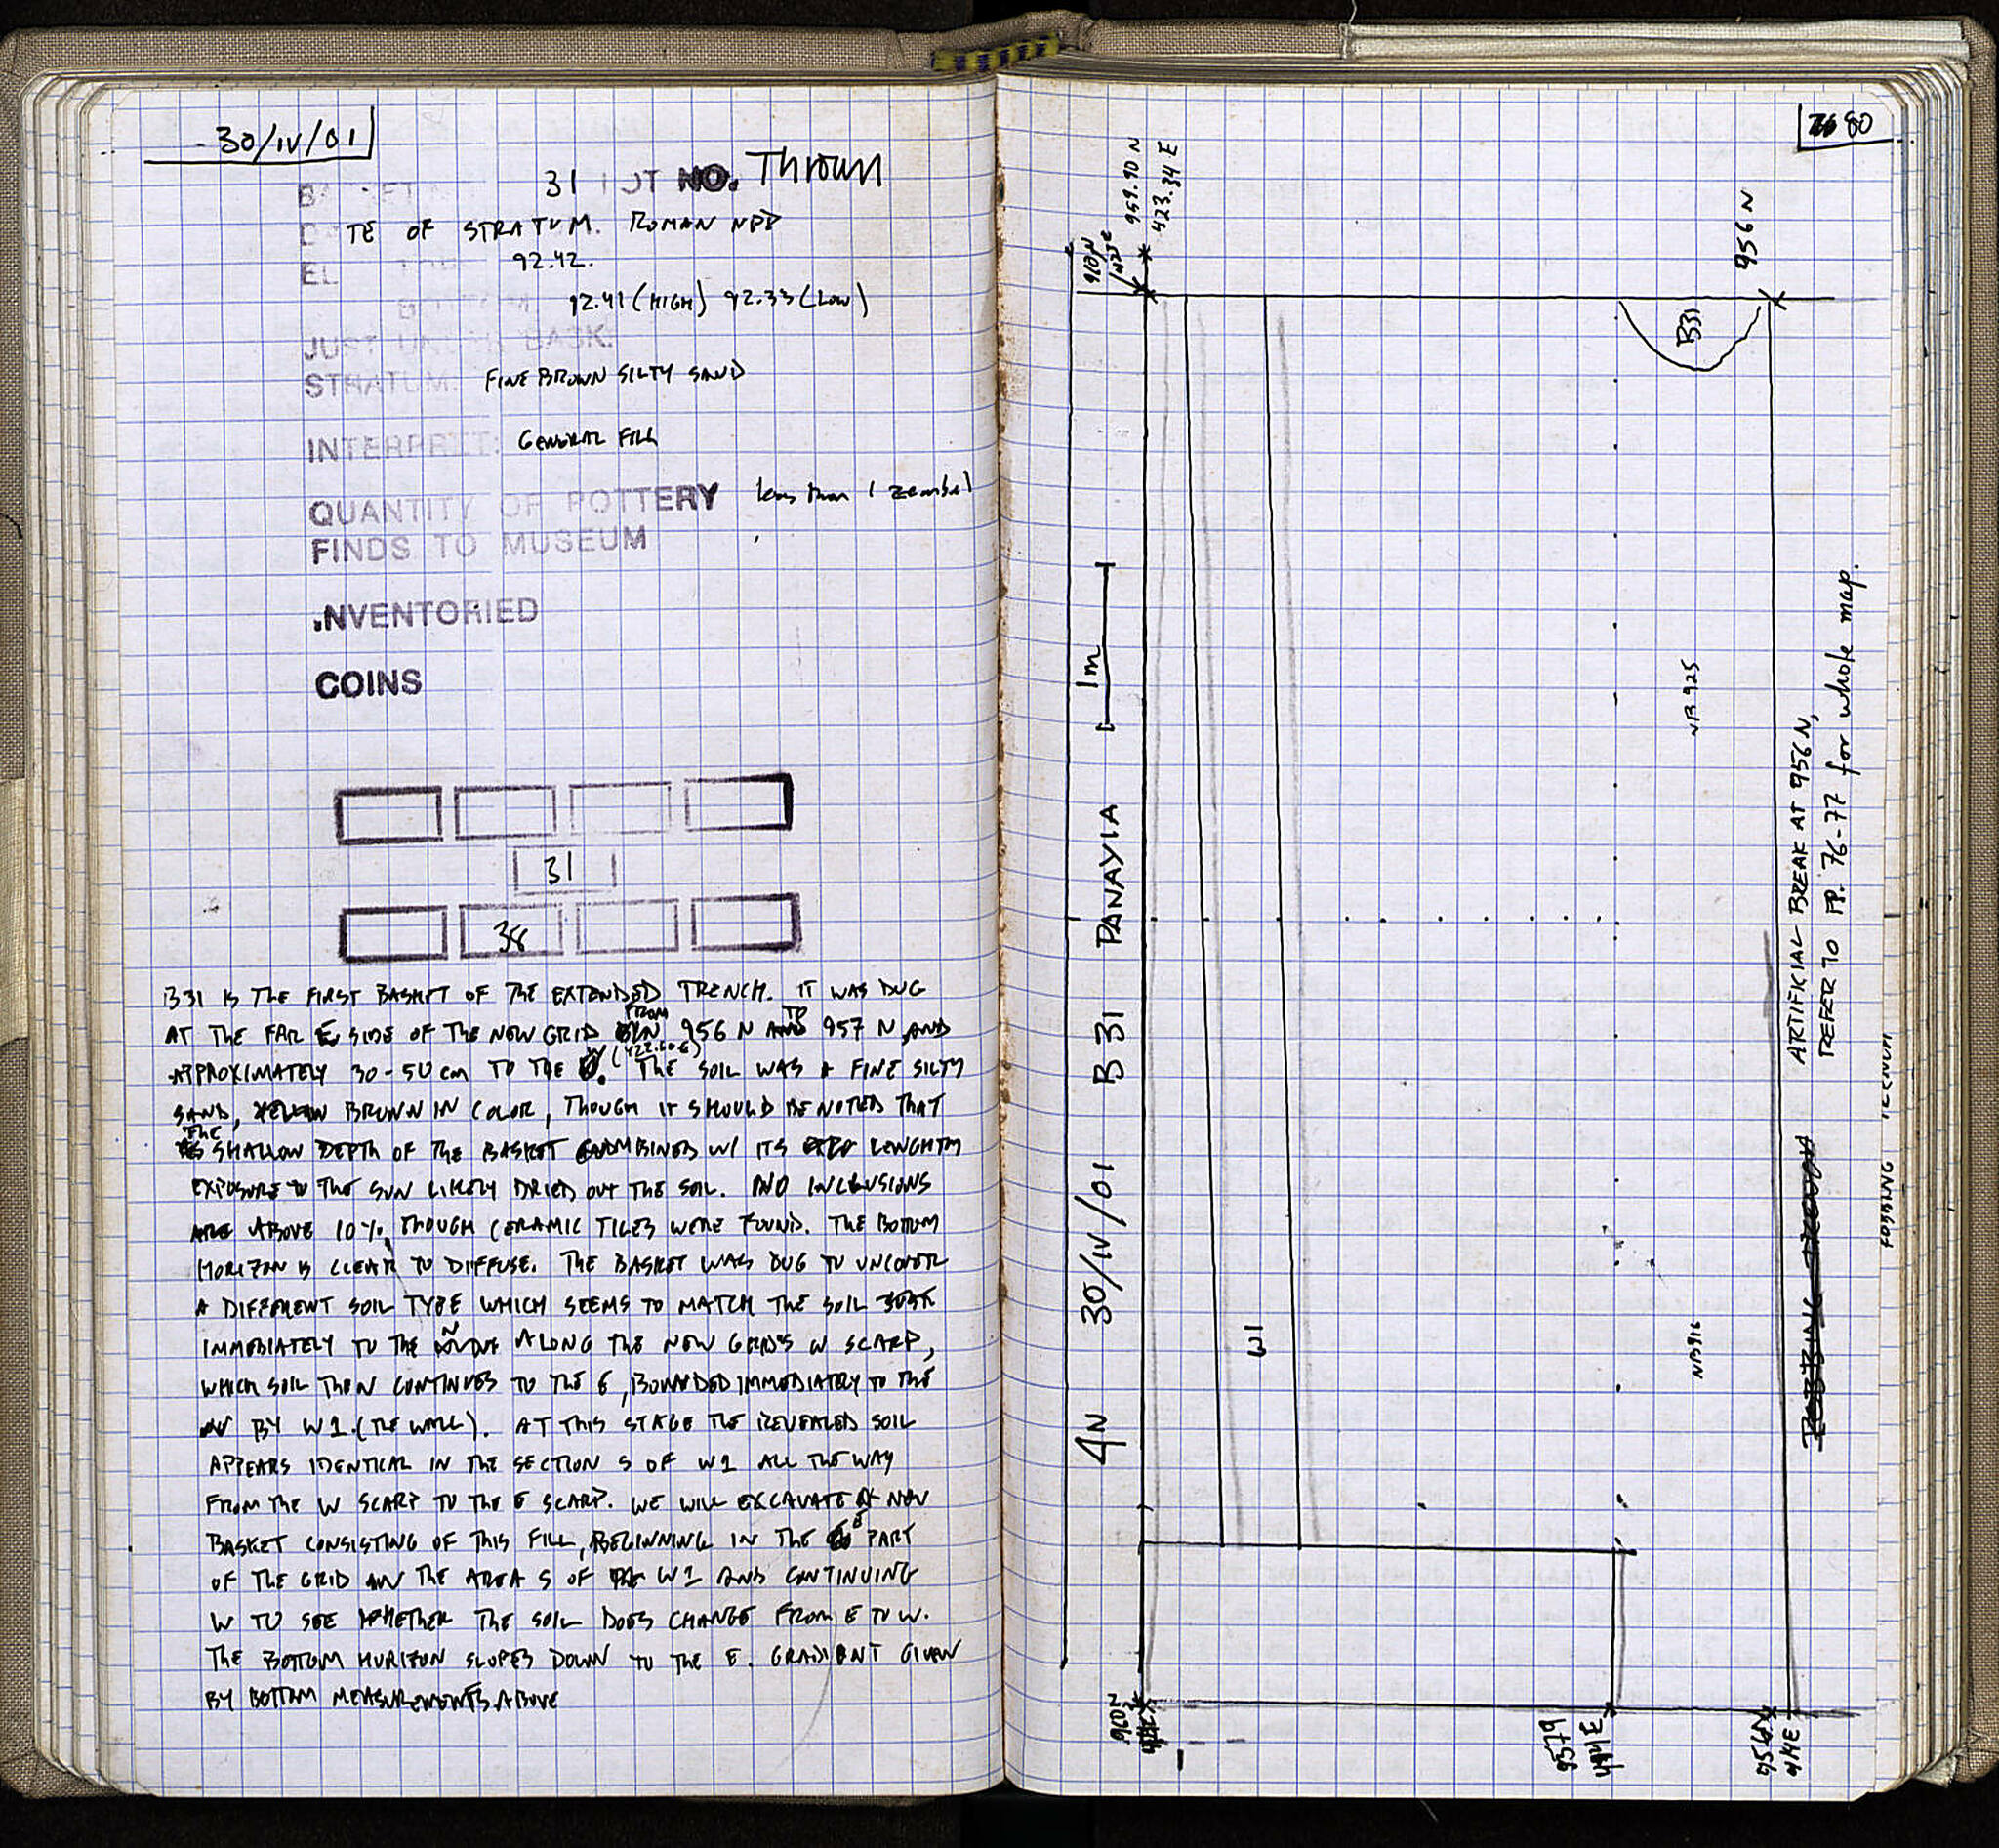 30/IV/01
BASKET 31 LOT NO. Thrown
DATE OF STRATUM. ROMAN NPD
EL 92.42.
BOTTOM. 92.41 (HIGH) 92.33 (LOW)
JUST UNDER BASK.
STRATUM. FINE BROWN SILTY SAND
INTERPRET: GENERAL FILL
QUANTITY OF POTTERY less than 1 zembel
FINDS TO MUSEUM
INVENTORIED
COINS
31
38
B31 IS THE FIRST BASKET OF THE EXTENDED TRENCH. IT WAS DUG
AT THE FAR E SIDE OF THE NEW GRID FROM 956 N TO 957 N, AND
APPROXIMATELY 30-50 cm TO THE W (422.60 E). THE SOIL WAS A FINE SILTY
SAND, YELLOW BROWN IN COLOR, THOUGH IT SHOULD BE NOTED THAT
THE SHALLOW DEPTH OF THE BASKET COMBINED W/ ITS LENGHTY
EXPOSURE TO THE SUN LIKELY DRIED OUT THE SOIL. NO INCLUSIONS
ARE ABOVE 10%, THOUGH CERAMIC TILES WERE FOUND. THE BOTTOM
HORIZON IS CLEAR TO DIFFUSE. THE BASKET WAS DUG TO UNCOVER
A DIFFERENT SOIL TYPE WHICH SEEMS TO MATCH THE SOIL
IMMEDIATELY TO THE N ALONG THE NEW GRID'S W SCARP,
WHICH SOIL THEN CONTINUES TO THE E, BOUNDED IMMEDIATELY TO THE
N BY W1. (THE WALL). AT THIS STAGE THE REVEALED SOIL
APPEARS IDENTICAL IN THE SECTION S OF W1 ALL THE WAY
FROM THE W SCARP TO THE E SCARP. WE WILL EXCAVATE A NEW
BASKET CONSISTING OF THIS FILL, BEGINNING IN THE E PART
OF THE GRID IN THE AREA S OF W1 AND CONTINUING
W TO SEE WHETHER THE SOIL DOES CHANGE FROM E TO W.
THE BOTTOM HORIZON SLOPES DOWN TO THE E. GRADIENT GIVEN
BY BOTTOM MEASUREMENTS ABOVE
80
4N 30/IV/01 B 31 PANAYIA 1m
959.90 N
423.34 E
956 N
B31
NB 925
W1
NB916
ARTIFICIAL BREAK AT 956 N,
REFER TO PP. 76-77 for whole map.
ROBBING TRENCH
956 N
414E